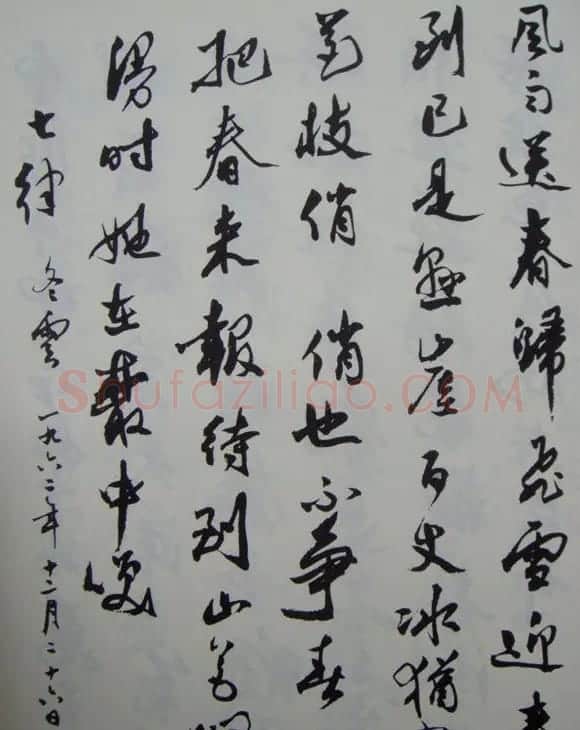 風雨送春歸飛雪迎春
到已是懸崖百丈冰猶
花枝俏 俏也不争春
把春来報待到山花
漫时她在叢中笑
七律 冬雲 一九六二年十二月二十六日
Shufaziliao.COM